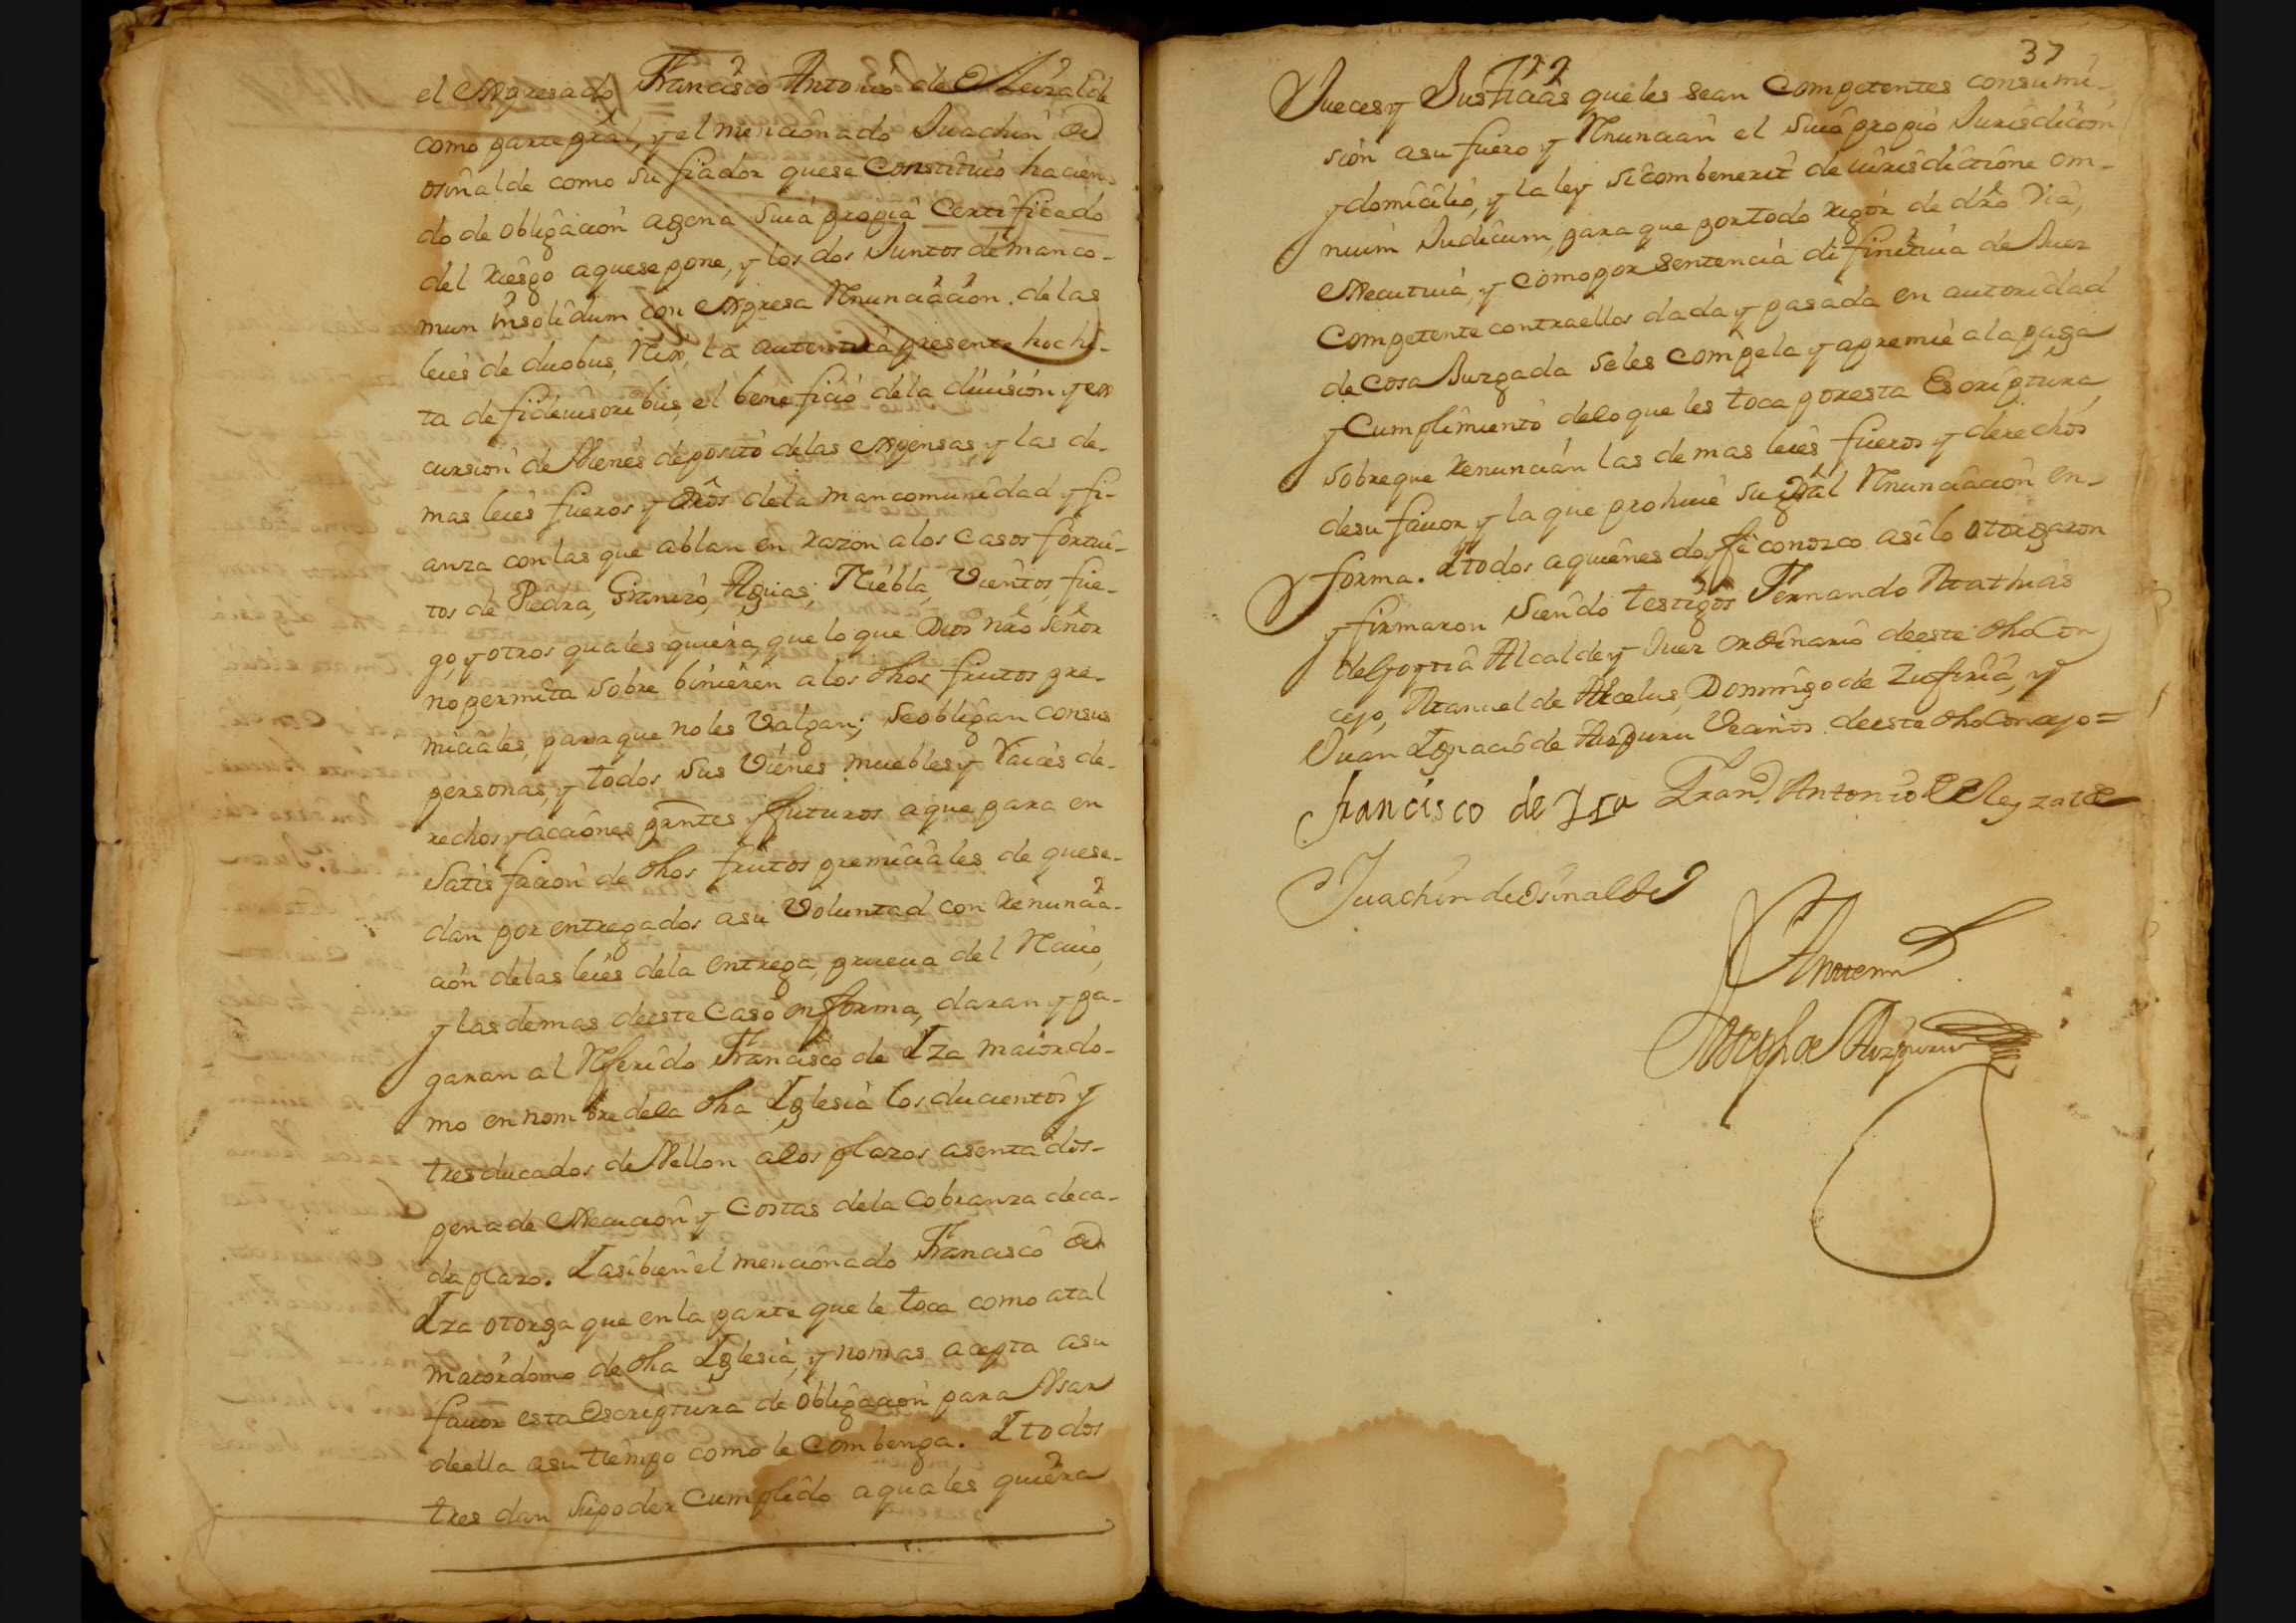 el expresado Francisco Antonio de Eleizalde
como parte prâl, y el mencionado Juachin de
osinalde como su fiador que se Constituió hacien-
do de obligacion agena suia propia Certificado
del riesgo aquese pone, y los dos Juntos de manco-
mun insolidum con expresa Renunciacion de las
leies de duobus, Rex, la autentica presente hoc hi-
ta de fideiusoribus, el beneficio de la diuision y ex
cursion de Vienes deposito delas expensas y las de-
mas leies fueros y dros dela mancomunidad y fi-
anza con las que ablan en razon alos Casos fortui-
tos de Piedra, Granizo, Aguas, Niebla, Vientos, fue-
go, y otros quales quiera, que lo que Dios nrô señor
no permita sobre binieren a los dhos frutos pre-
miciales, para que no les Valgan; se obligan consus
personas, y todos sus Vienes muebles y Raices de-
rechos y acciones prntes y futuros a que para en
satisfacion de dhos frutos premiciales de quese-
dan por entregados asu Voluntad con Renuncia-
cion delas leies dela entrega, prueua del Reciuo,
y las demas deeste Caso en forma, daran y pa-
garan al Referido Francisco de Iza maiordo-
mo en nombre dela dha Iglesia los ducientos y
tres ducados de Vellon alos plazos asentados-
pena de execucion y Costas dela Cobranza deca-
da plazo. I asibien el mencionado Francisco de
Iza otorga que en la parte que le toca como atal
maiordomo de dha Iglesia, y nomas acepta asu
fauor esta Escriptura de obligacion para Vsar
deella asu tiempo como le Combenga. I todos
tres dan su poder Cumplido a quales quiera
37
Jueces y Justicias que les sean Competentes consumi-
sion asu fuero y Renuncian el suio propio Jurisdicion
y domicilio, y la ley sicombenerit de iurisdictione om-
nium Judicum, para que por todo rigor de drô Via,
executiua, y como por sentencia difinitiua de Juez
Competente contra ellos dada y pasada en autoridad
de Cosa Juzgada seles Compela y apremie ala paga
y Cumplimiento delo que les toca poresta Escriptura,
sobre que renuncian las demas leies fueros y derechos
desu fauor y la que prohiue su grâl Renunciacion en-
forma. I todos aquienes doy fe conozco asilo otorgaron
y firmaron siendo testigos Fernando Mathias
de Goytia Alcalde y Juez ordinario deeste dho Con
cejo, Manuel de Alcelus, Domingo de Zufiria, y
Juan Ignacio de Auzpuru Vecinos deeste dho Concejo=
francisco de Iza Fran.co Antonio de Eleyzalde
Juachin de Osinalde
Antemi
Joseph de Auzpuru